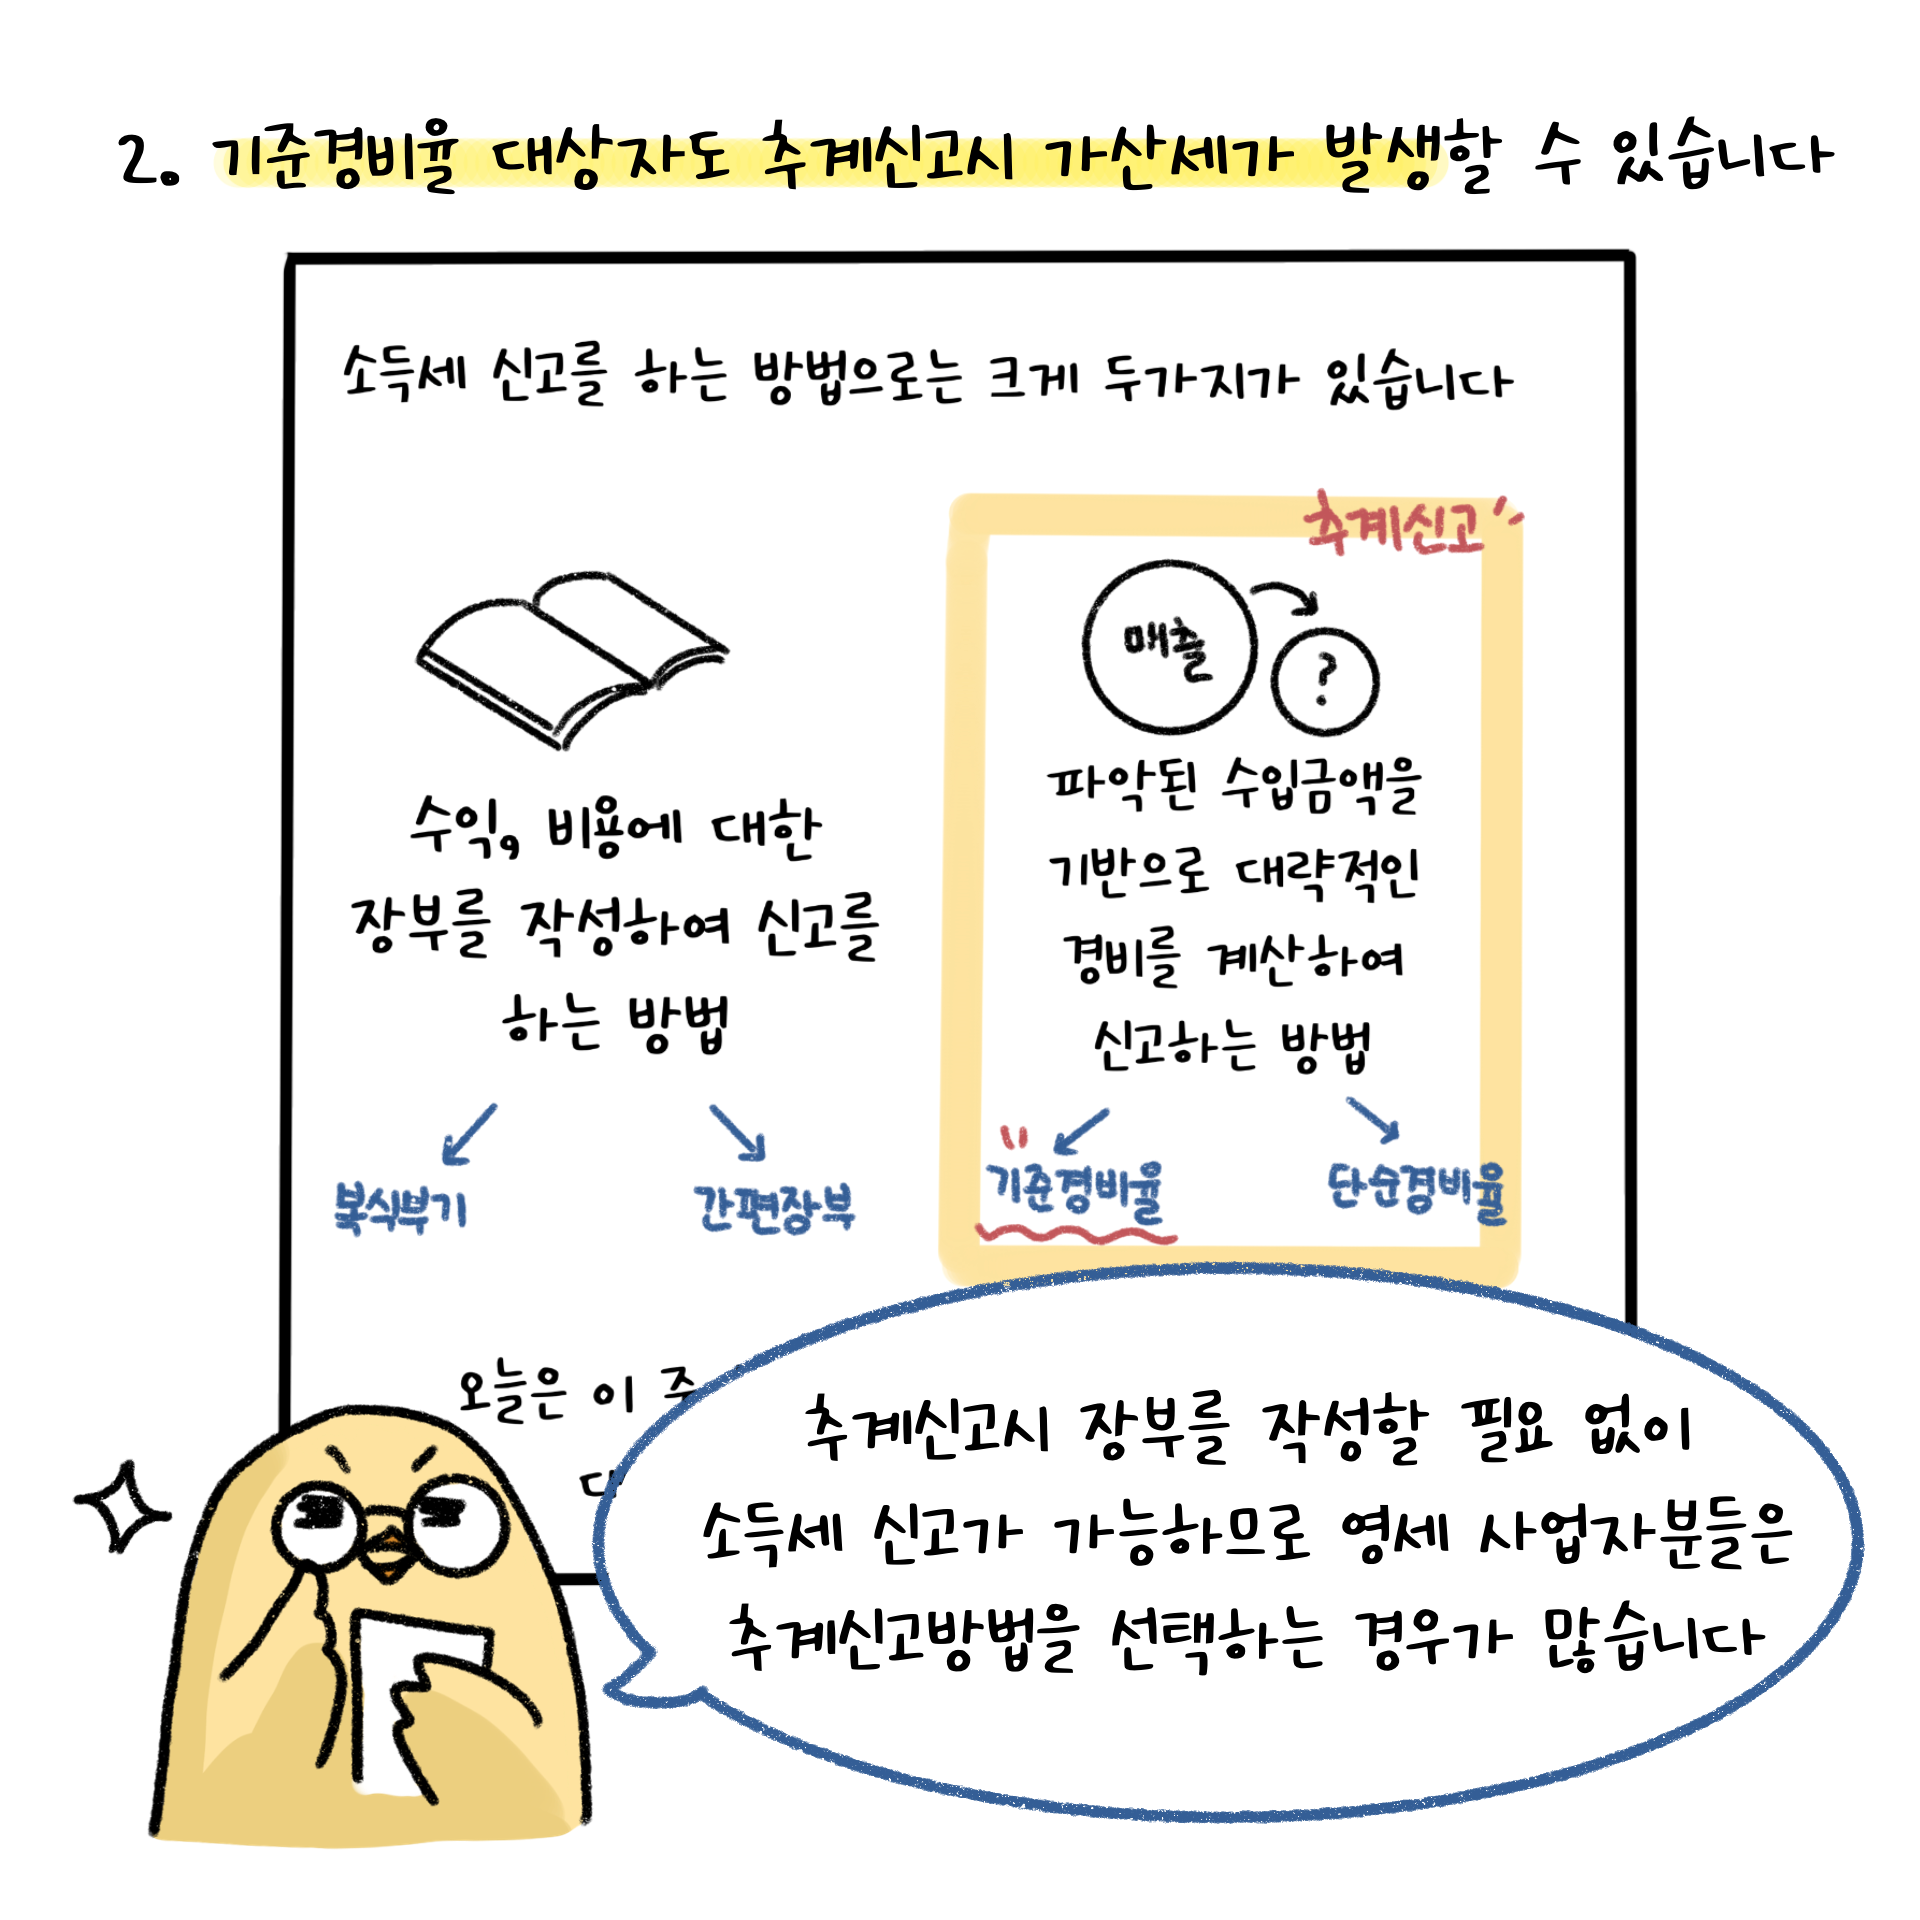 2. 기준경비율 대상자도 추계신고시 가산세가 발생할 수 있습니다
소득세 신고를 하는 방법으로는 크게 두가지가 있습니다
수익, 비용에 대한
장부를 작성하여 신고를
하는 방법
복식부기
간편장부
추계신고
매출
?
파악된 수입금액을
기반으로 대략적인
경비를 계산하여
신고하는 방법
기준경비율
단순경비율
오늘은 이
추계신고시 장부를 작성할 필요 없이
소득세 신고가 가능하므로 영세 사업자분들은
추계신고방법을 선택하는 경우가 많습니다